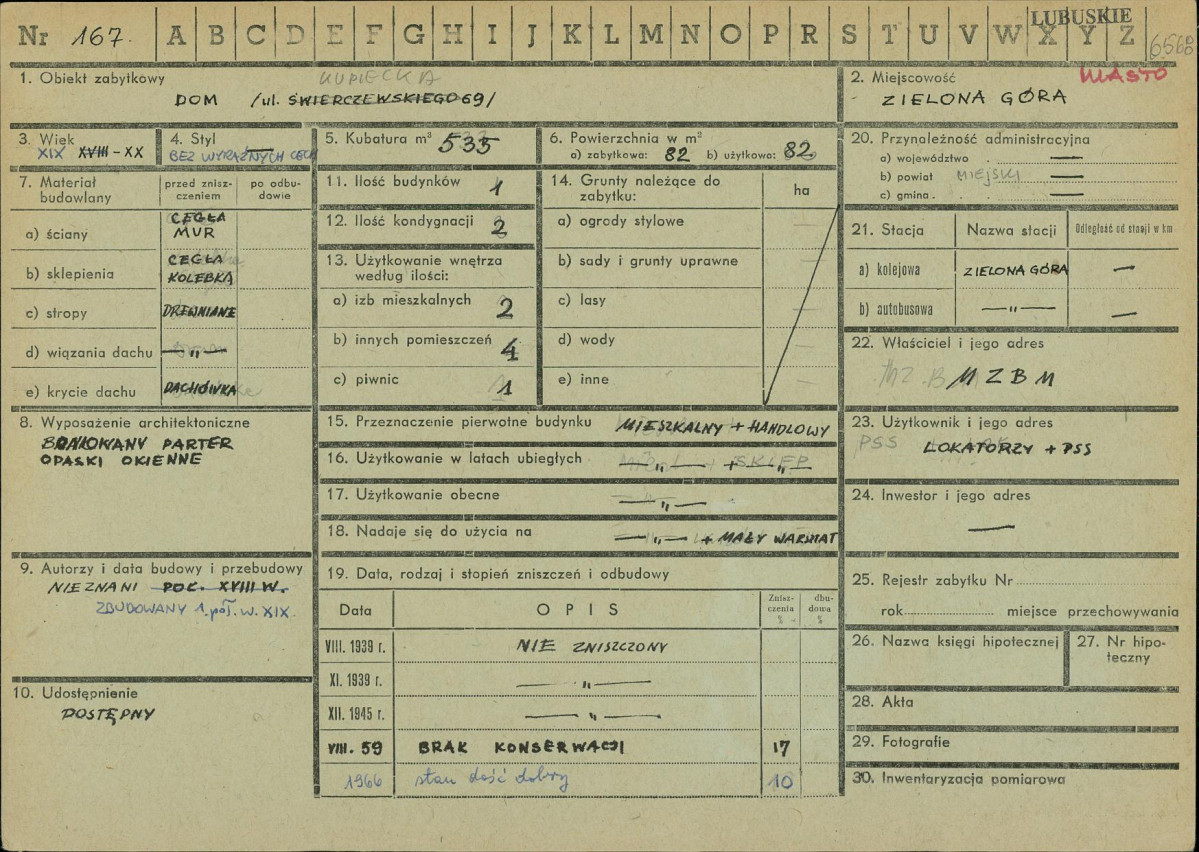 Nr 167. A B C D E F G H I J K L M N O P R S T U V W X Y Z
LUBUSKIE
1. Obiekt zabytkowy
KUPIECKA
DOM /ul. ŚWIERCZEWSKIEGO 69/
2. Miejscowość
MIASTO
ZIELONA GÓRA
3. Wiek
XIX XVIII - XX
4. Styl
BEZ WYRAŹNYCH CECH
5. Kubatura m³ 535
6. Powierzchnia w m²
a) zabytkowa: 82 b) użytkowa: 82
7. Materiał budowlany
przed zniszczeniem
po odbudowie
a) ściany
CEGŁA
MUR
b) sklepienia
CEGŁA
KOLEBKA
c) stropy DREWNIANE
d) wiązania dachu — „ —
e) krycie dachu DACHÓWKA
8. Wyposażenie architektoniczne
BONIOWANY PARTER
OPASKI OKIENNE
9. Autorzy i data budowy i przebudowy
NIEZNANI POC. XVIII W.
ZBUDOWANY 1. poł. w. XIX.
10. Udostępnienie
DOSTĘPNY
11. Ilość budynków 1
12. Ilość kondygnacji 2
13. Użytkowanie wnętrza
według ilości:
a) izb mieszkalnych 2
b) innych pomieszczeń 4
c) piwnic 1
14. Grunty należące do
zabytku:
ha
a) ogrody stylowe
b) sady i grunty uprawne
c) lasy
d) wody
e) inne
15. Przeznaczenie pierwotne budynku MIESZKALNY + HANDLOWY
16. Użytkowanie w latach ubiegłych — „ — + SKLEP
17. Użytkowanie obecne — „ —
18. Nadaje się do użycia na — „ — + MAŁY WARSZTAT
19. Data, rodzaj i stopień zniszczeń i odbudowy
Data
OPIS
Zniszczenia %
dbudowa %
VIII. 1939 r. NIE ZNISZCZONY
XI. 1939 r. — „ —
XII. 1945 r. — „ —
VIII. 59 BRAK KONSERWACJI 17
1966 stan dość dobry 10
20. Przynależność administracyjna
a) województwo —
b) powiat MIEJSKI —
c) gmina —
21. Stacja
Nazwa stacji
Odległość od stacji w km
a) kolejowa ZIELONA GÓRA —
b) autobusowa — „ — —
22. Właściciel i jego adres
MZBM
23. Użytkownik i jego adres
PSS
LOKATORZY + PSS
24. Inwestor i jego adres
—
25. Rejestr zabytku Nr
rok miejsce przechowywania
26. Nazwa księgi hipotecznej
27. Nr hipoteczny
28. Akta
29. Fotografie
30. Inwentaryzacja pomiarowa